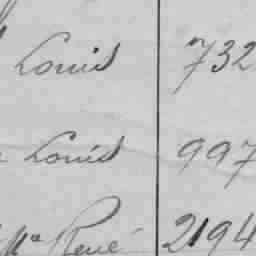 Louis 732
Louis 997
Ma René 2194